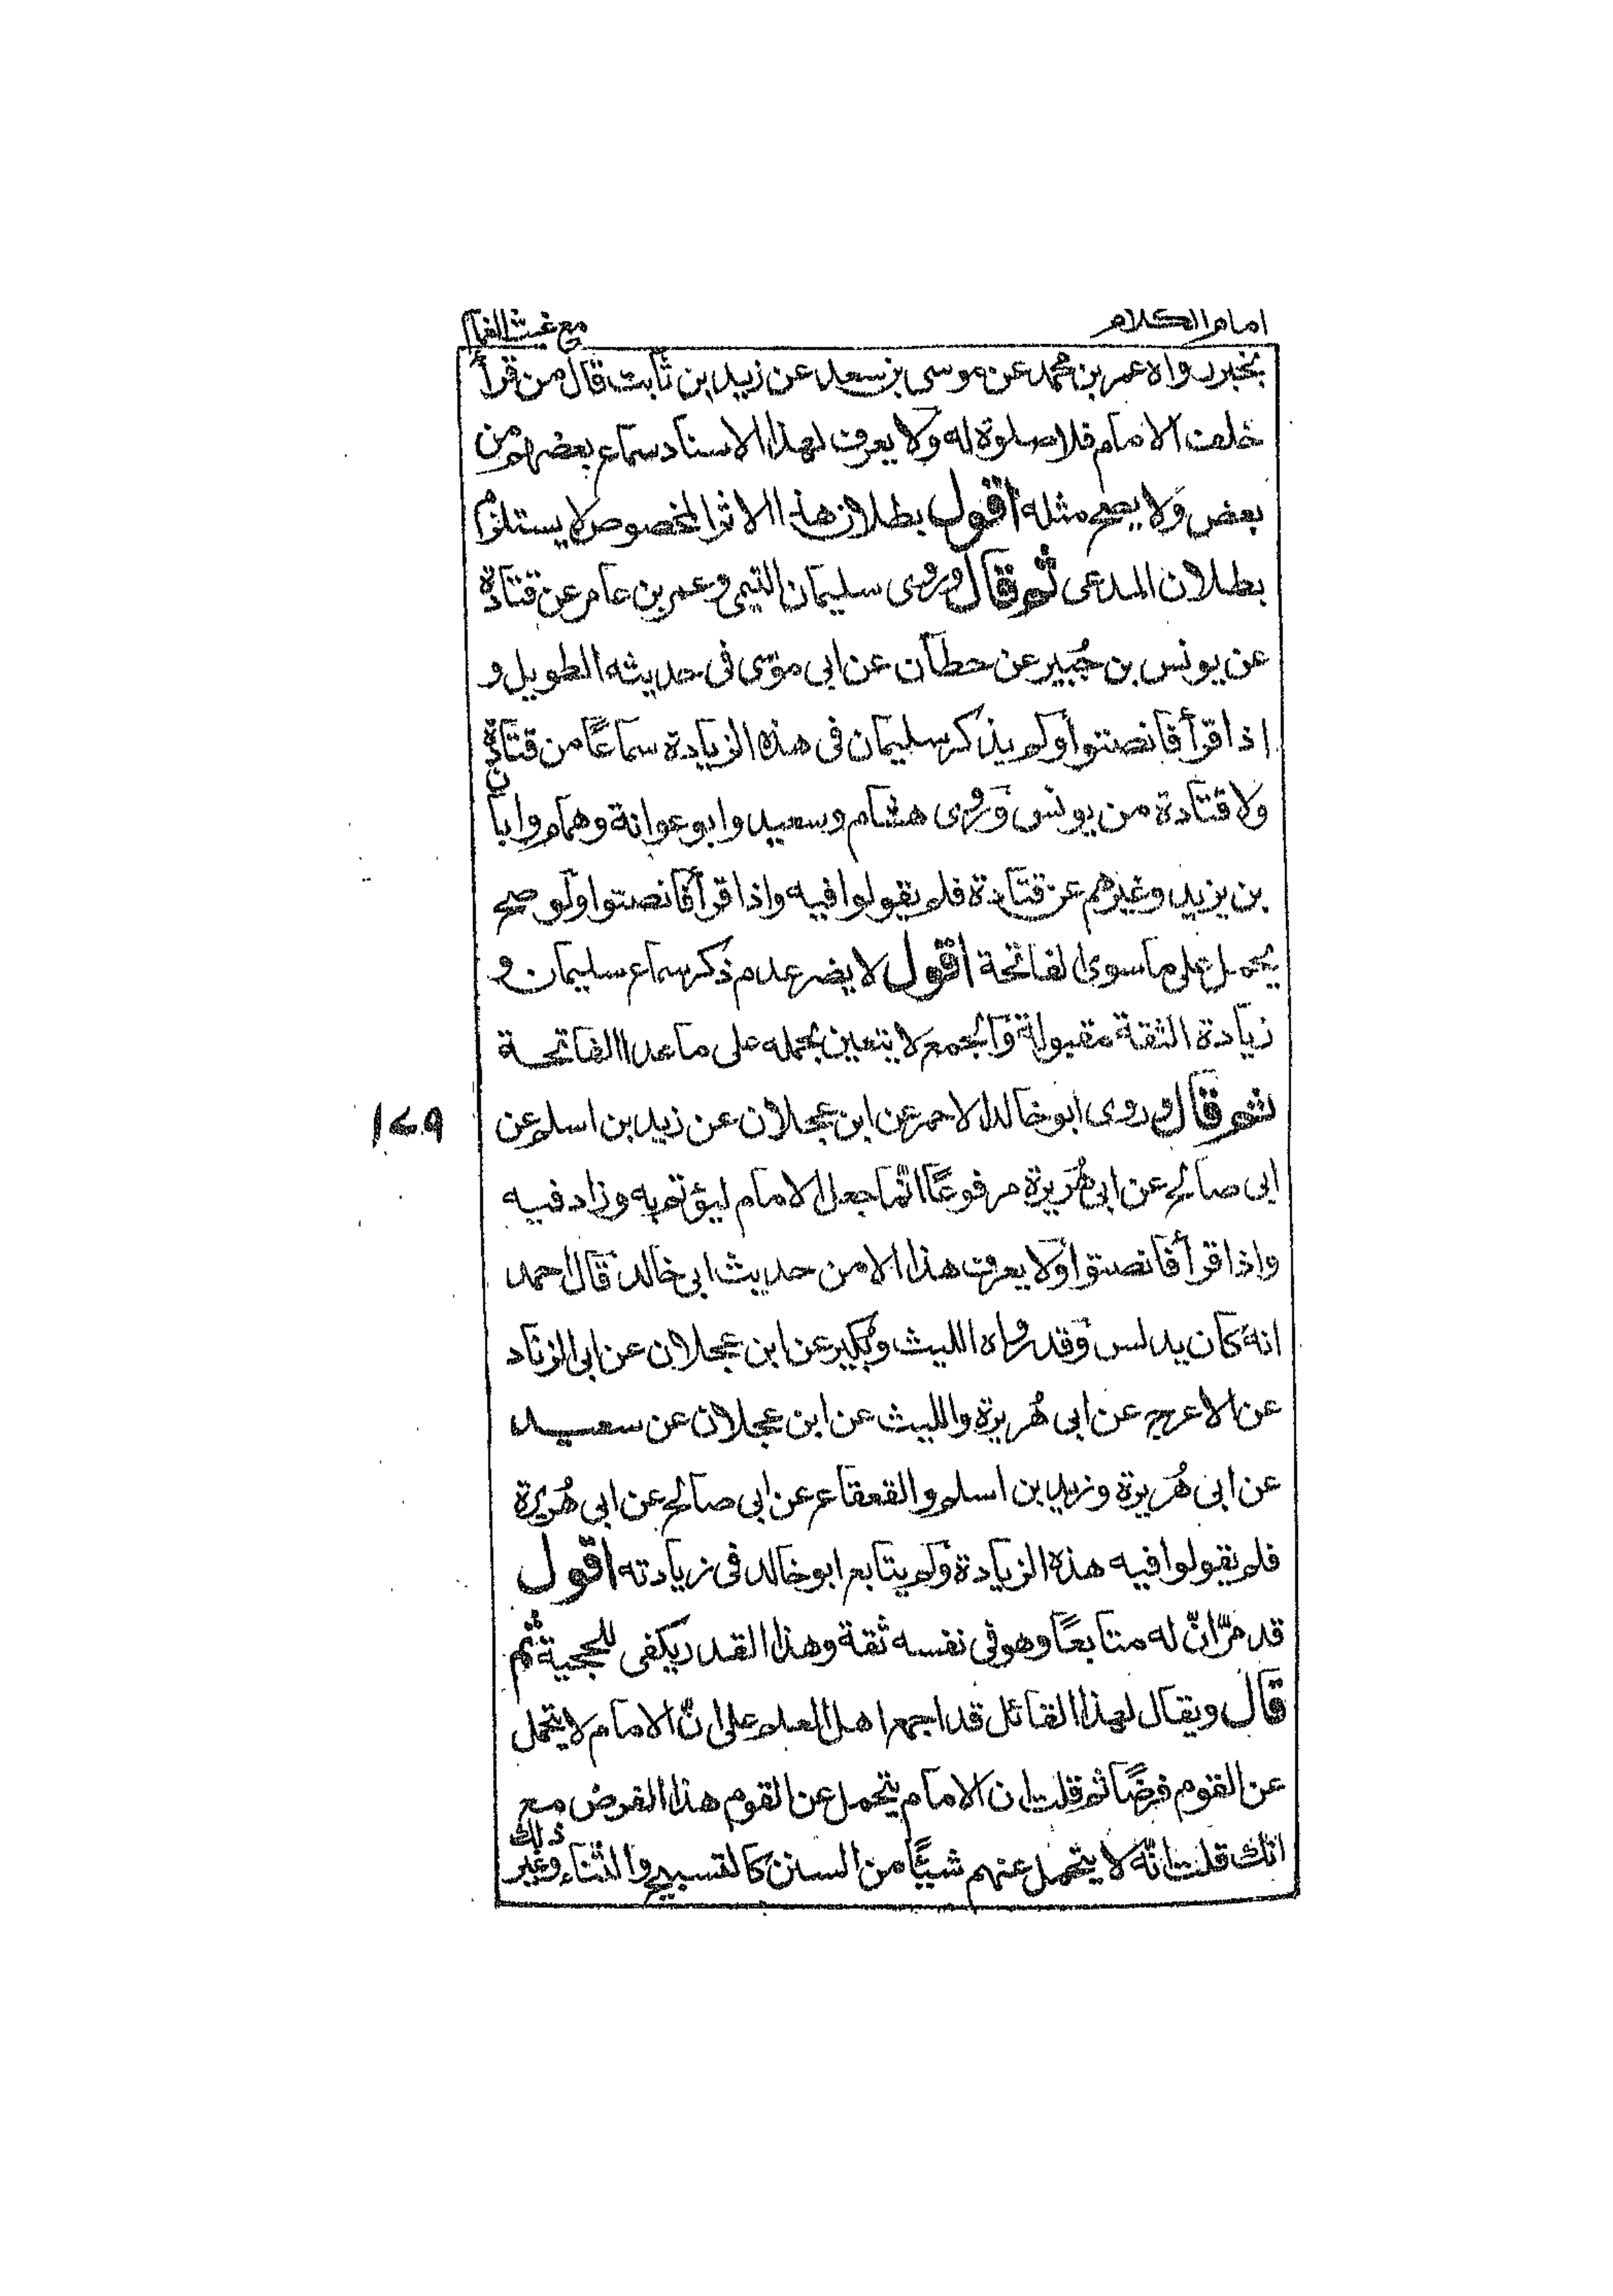 امام الكلام
مع غيث الغمام
بخبر رواه عمر بن محمد عن موسى بن سعد عن زيد بن ثابت قال من قرأ
خلف الامام فلا صلوة له ولا يعرف لهذا الاسناد سماع بعضهم من
بعض ولا يصح مثله اقول بطلان هذا الاثر المخصوص لا يستلزم
بطلان المدعى ثم قال وروى سليمان التيمي وعمر بن عامر عن قتادة
عن يونس بن جُبير عن حطان عن ابى موسى فى حديثه الطويل و
اذا قرأ فانصتوا ولم يذكر سليمان فى هذه الزيادة سماعًا من قتادة
ولا قتادة من يونس وروى هشام وسعيد وابو عوانة وهمام وابان
بن يزيد وغيرهم عن قتادة فلم يقولوا فيه واذا قرأ فانصتوا ولو صح
يحمل على ما سوى الفاتحة اقول لا يضر عدم ذكر سماع سليمان و
زيادة الثقة مقبولة والجمع لا يتعين بحمله على ما عدا الفاتحة
ثم قال وروى ابو خالد الاحمر عن ابن عجلان عن زيد بن اسلم عن
ابى صالح عن ابى هُريرة مرفوعًا انما جعل الامام ليؤتم به وزاد فيه
واذا قرأ فانصتوا ولا يعرف هذا الا من حديث ابى خالد قال احمد
انه كان يدلس وقد رواه الليث وبُكير عن ابن عجلان عن ابى الزناد
عن الاعرج عن ابى هُريرة والليث عن ابن عجلان عن سعيد
عن ابى هُريرة وزيد بن اسلم والقعقاع عن ابى صالح عن ابى هُريرة
فلم يقولوا فيه هذه الزيادة ولم يتابع ابو خالد فى زيادته اقول
قد مرّ انّ له متابعًا وهو فى نفسه ثقة وهذا القدر يكفى للحجية ثم
قال ويقال لهذا القائل قد اجمع اهل العلم على انّ الامام لا يتحمل
عن القوم فرضًا ثم قلت ان الامام يتحمل عن القوم هذا الفرض مع
انك قلت انّه لا يتحمل عنهم شيئًا من السنن كالتسبيح والثناء وغير ذلك
١٧٩